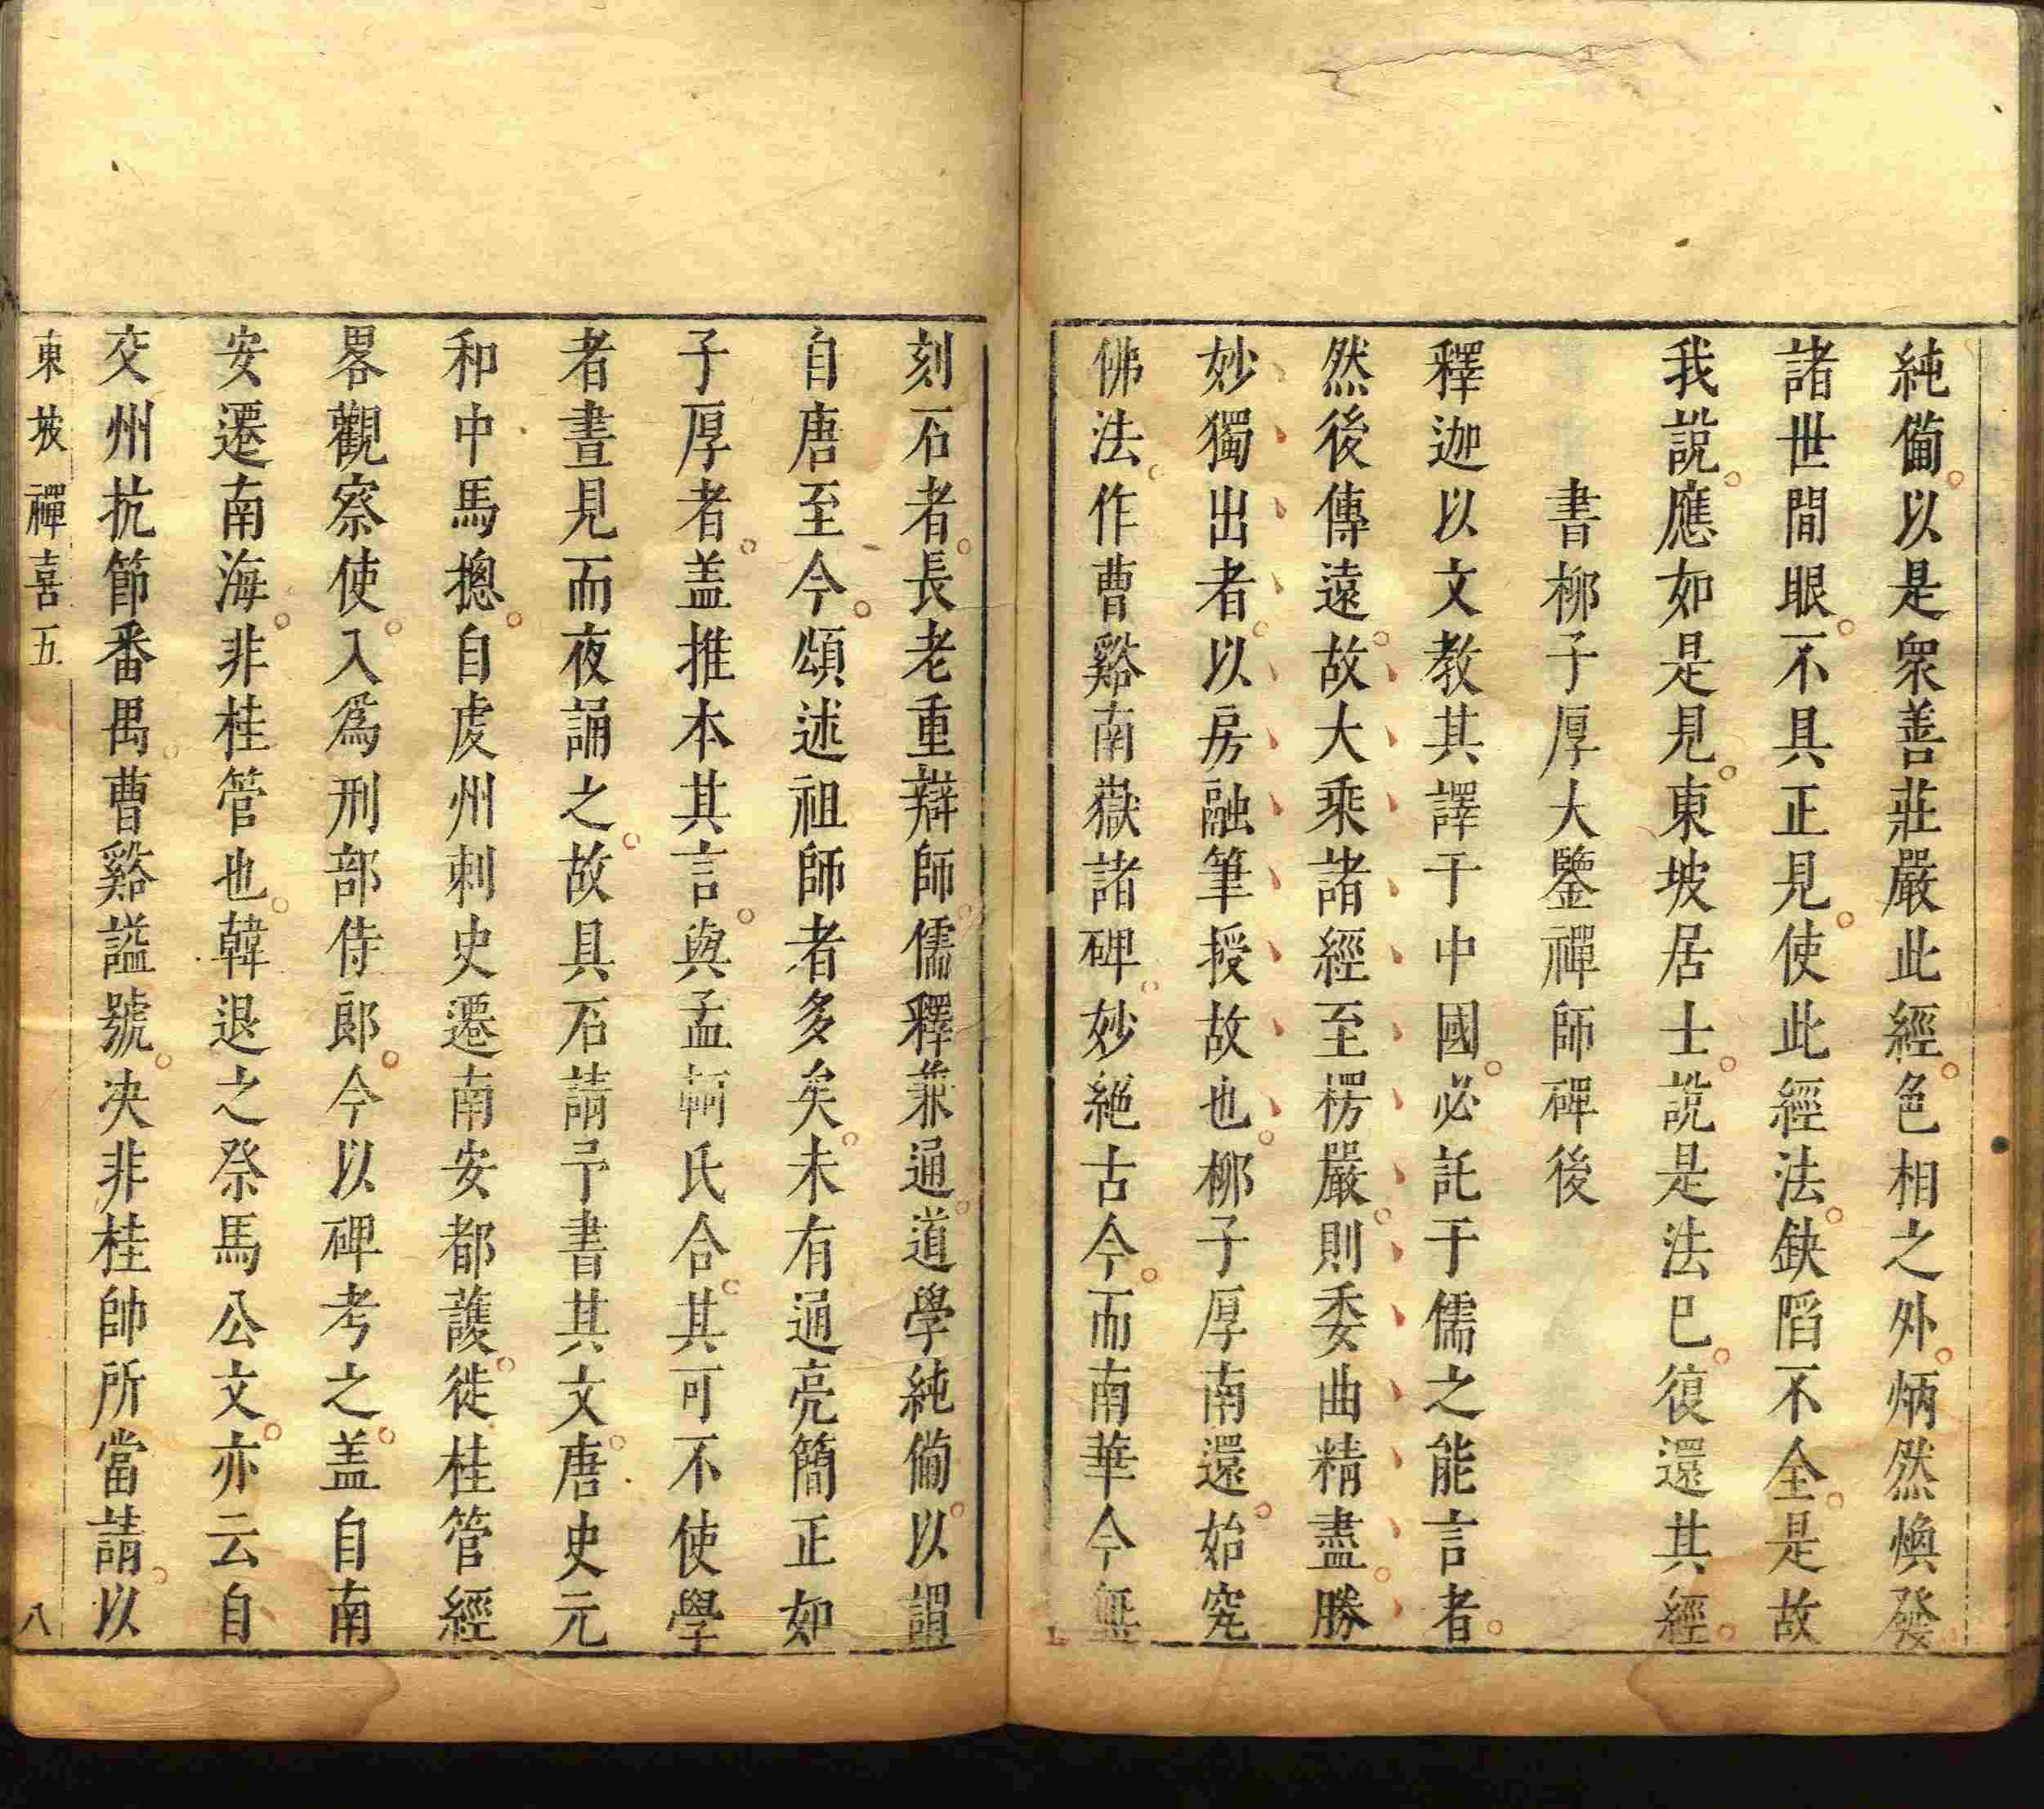 純備以是衆善莊嚴此經色相之外炳然煥發
諸世間眼不具正見使此經法缺陷不全是故
我說應如是見東坡居士說是法已復還其經
書柳子厚大鑒禪師碑後
釋迦以文教其譯于中國必託于儒之能言者
然後傳遠故大乘諸經至楞嚴則委曲精盡勝
妙獨出者以房融筆授故也柳子厚南還始究
佛法作曹谿南嶽諸碑妙絕古今而南華今無
刻石者長老重辯師儒釋兼通道學純備以謂
自唐至今頌述祖師者多矣未有通亮簡正如
子厚者盖推本其言與孟軻氏合其可不使學
者晝見而夜誦之故具石請予書其文唐史元
和中馬摠自虔州刺史遷南安都護徙桂管經
畧觀察使入爲刑部侍郎今以碑考之盖自南
安遷南海非桂管也韓退之祭馬公文亦云自
交州抗節番禺曹谿謚號决非桂帥所當請以
東坡禪喜五 八